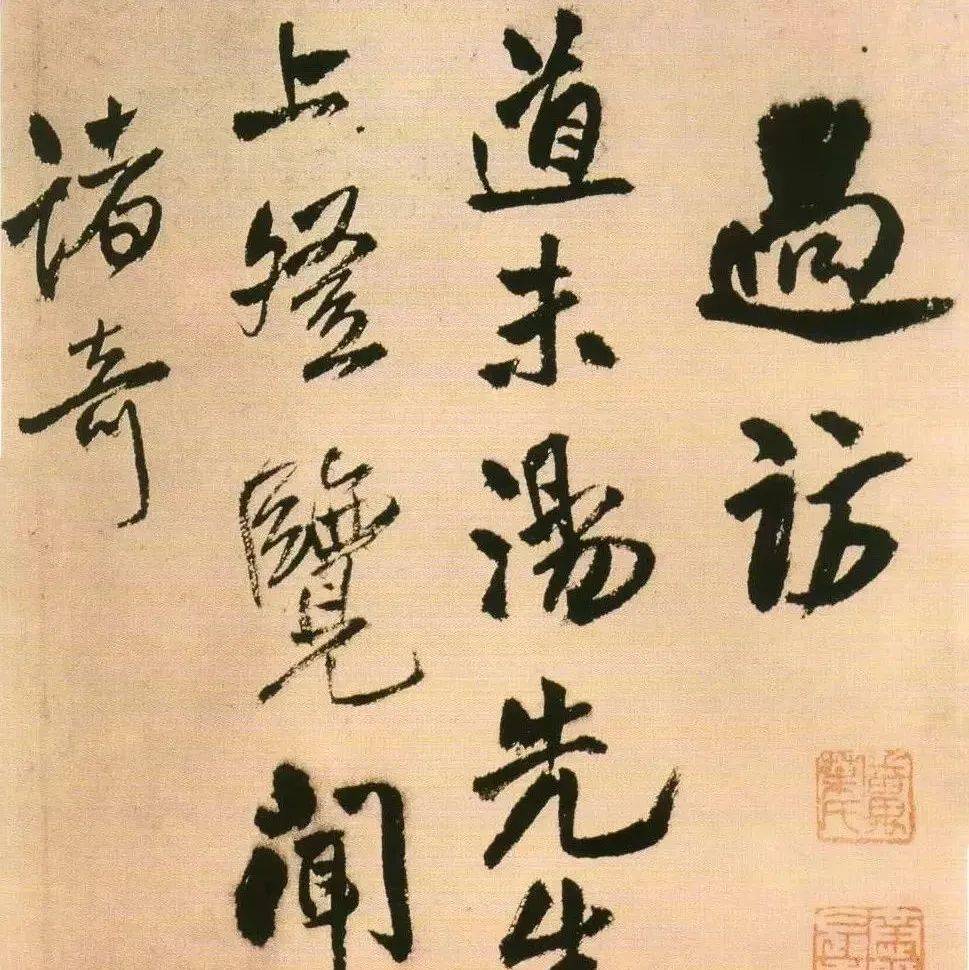 過訪
道未湯先生
上登覽聞
諸奇